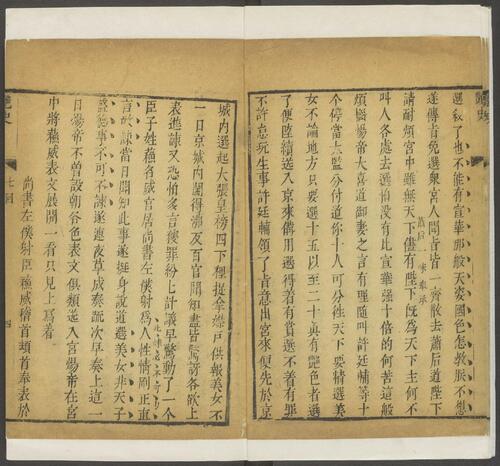 艷史
選殺了也不能有宣華那般天姿國色怎教朕不想
遂傳旨免選衆宮人聞旨皆一齊散去蕭后道陛下
請耐煩宮中雖無天下儘有陛下旣爲天下主何不
叫人各處去選怕没有比宣華强十倍的何苦這般
煩惱煬帝大喜道御妻之言有理隨叫許廷輔等十
个停當太監分付道你十人可分徃天下要精選美
女不論地方只要選十五以至二十真有艷色者選
了便陸續送入京來備用選得着有賞選不着有罪
不許怠玩生事許廷輔領了旨意出宮來便先於京
城内選起大張皇榜四下裡捉拿媒戶供報美女不
一日京城内閙得沸反百官聞知盡皆驚訝各欲上
表進諫又恐怕多言獲罪紛紛計議早驚動了一个
臣子姓蘓名威官居尚書左僕射爲人性情剛正直
言敢諫當日聞知此事遂挺身說道選美女非天子
盛德事不可不諫遂連夜草成奏疏次早奏上這一
日煬帝不曾設朝各色表文俱類送入宮煬帝在宮
中將蘓威表文展開一看只見上寫着
尚書左僕射臣蘓威稽首頓首奉表於
艷史
七囘
四